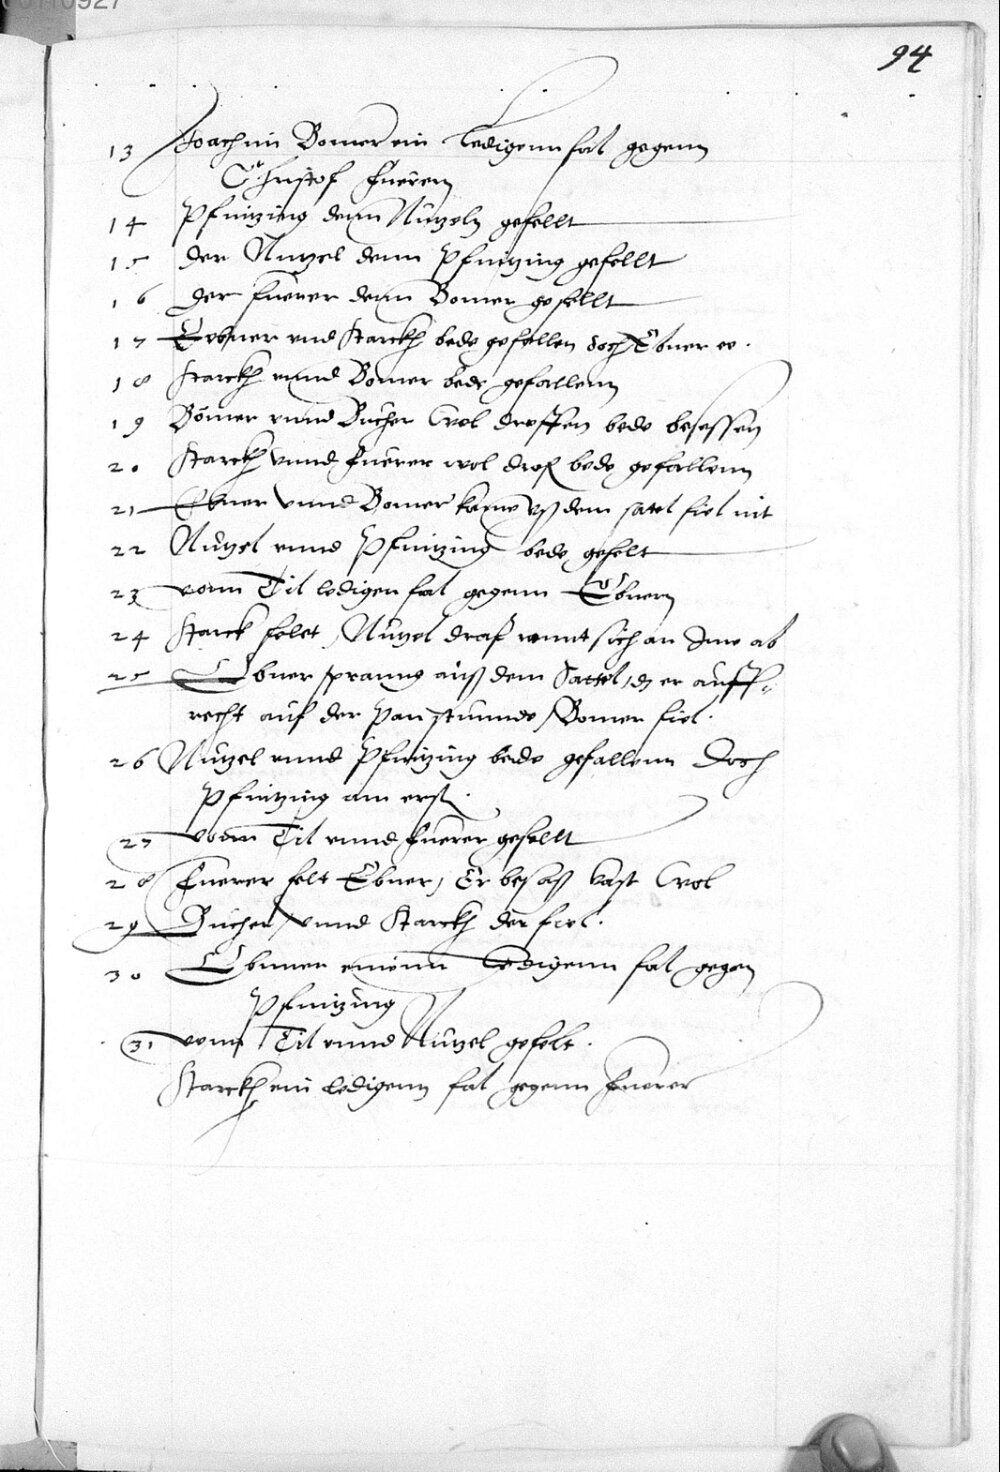 94
13 Joachim Bomer ein ledigenn fal gegenn
Christof Fuerern
14 Pfintzing denn Nutzeln gefellt
15 der Nutzel denn Pfintzing gefellt
16 der Fuerer denn Bomer gefellt
17 Ebner vnd Starckh bede gefallen doch Ebner ee.
18 Starckh vnnd Bomer bede gefallenn
19 Bömer vnnd Bucher wol droffen bede besessen
20 Starckh vnnd Fuerer wol drof bede gefallenn
21 Ebner vnnd Bomer kame vß dem satel fiel nit
22 Nützel vnnd Pfintzing bede gefelt
23 vonn Til ledigen fal gegenn Ebnern
24 Starck felet, Nützel draf rannt sich an Ime ab
25 Ebner spranng auß dem Sattel, dz er auff-
recht auf der pan stunnde, Bomer fiel.
26 Nützel vnnd Pfintzing bede gefallenn doch
Pfintzing am erst.
27 vonn Til vnnd Fuerer gefellt
28 Fuerer felt Ebner, Er besaß vast wol
29 Bucher vnnd Starckh der fiel.
30 Ebnner einenn ledigenn fal gegen
Pfintzing
31 vonn Til vnnd Nützel gefelt.
Starckh ein ledigenn fal gegenn Fuerer